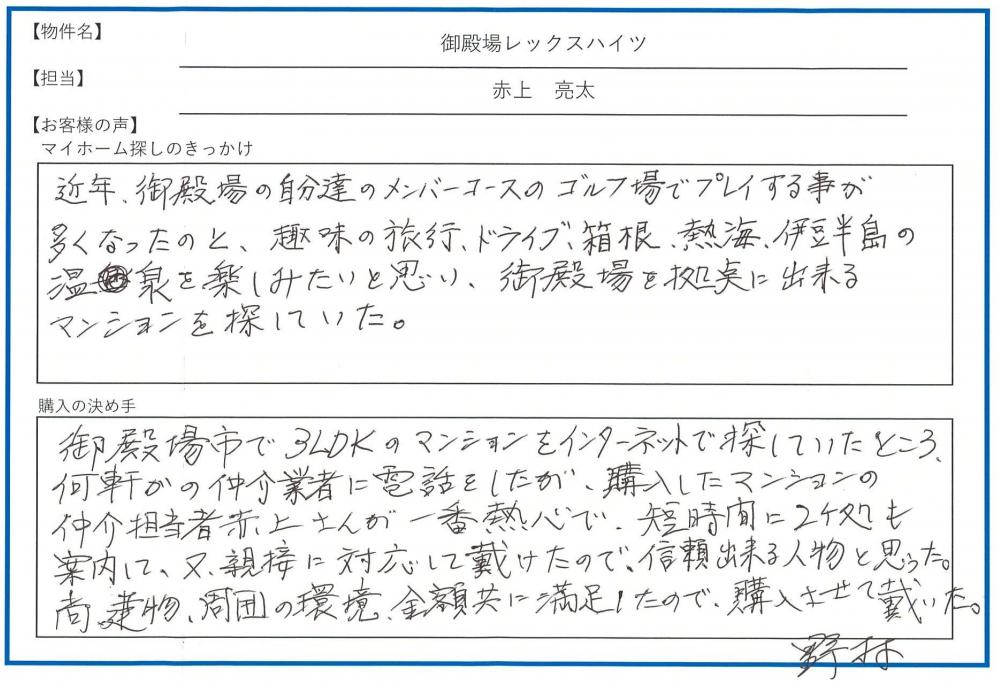 【物件名】
御殿場レックスハイツ
【担当】
赤上 亮太
【お客様の声】
マイホーム探しのきっかけ
近年、御殿場の自分達のメンバーコースのゴルフ場でプレイする事が
多くなったのと、趣味の旅行、ドライブ、箱根、熱海、伊豆半島の
温泉を楽しみたいと思い、御殿場を拠点に出来る
マンションを探していた。
購入の決め手
御殿場市で3LDKのマンションをインターネットで探していたところ、
何軒かの仲介業者に電話をしたが、購入したマンションの
仲介担当者赤上さんが一番熱心で、短時間に2ヶ処も
案内して、又、親接に対応して戴けたので、信頼出来る人物と思った。
尚、建物、周囲の環境、金額共に満足したので、購入させて戴いた。
野村